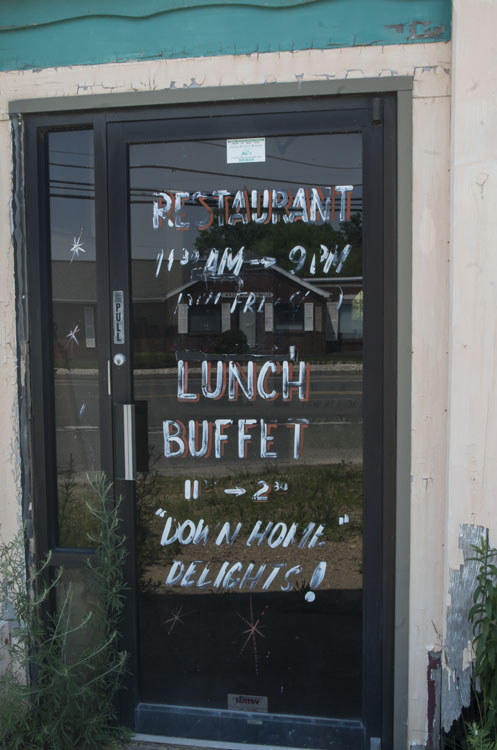 RESTAURANT
11³⁰ AM → 9 PM
FRI
PULL
LUNCH
BUFFET
11³⁰ → 2³⁰
"DOWN HOME"
DELIGHTS!
SENTRY